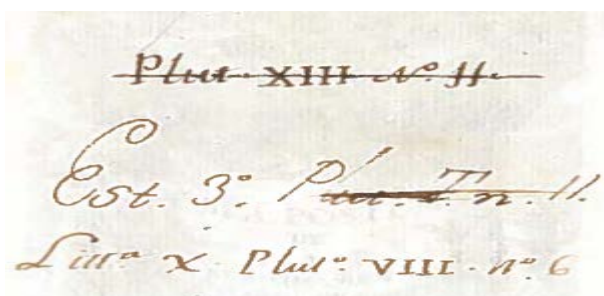 Plut. XIII Nº. 11.
Est. 3º. P T. n. 11.
Litt.ª X. Plut.º VIII. nº. 6